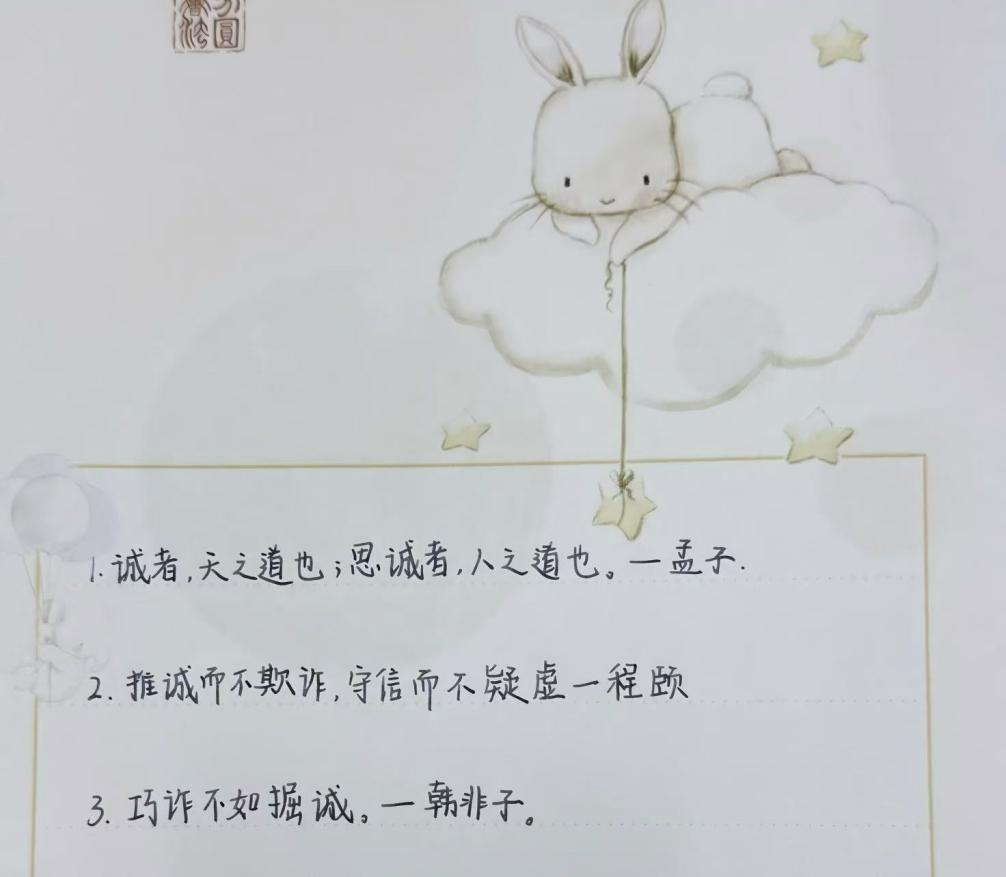 方圆
书法
1. 诚者,天之道也;思诚者,人之道也。—孟子.
2. 推诚而不欺诈,守信而不疑虚—程颐
3. 巧诈不如掘诚。—韩非子。